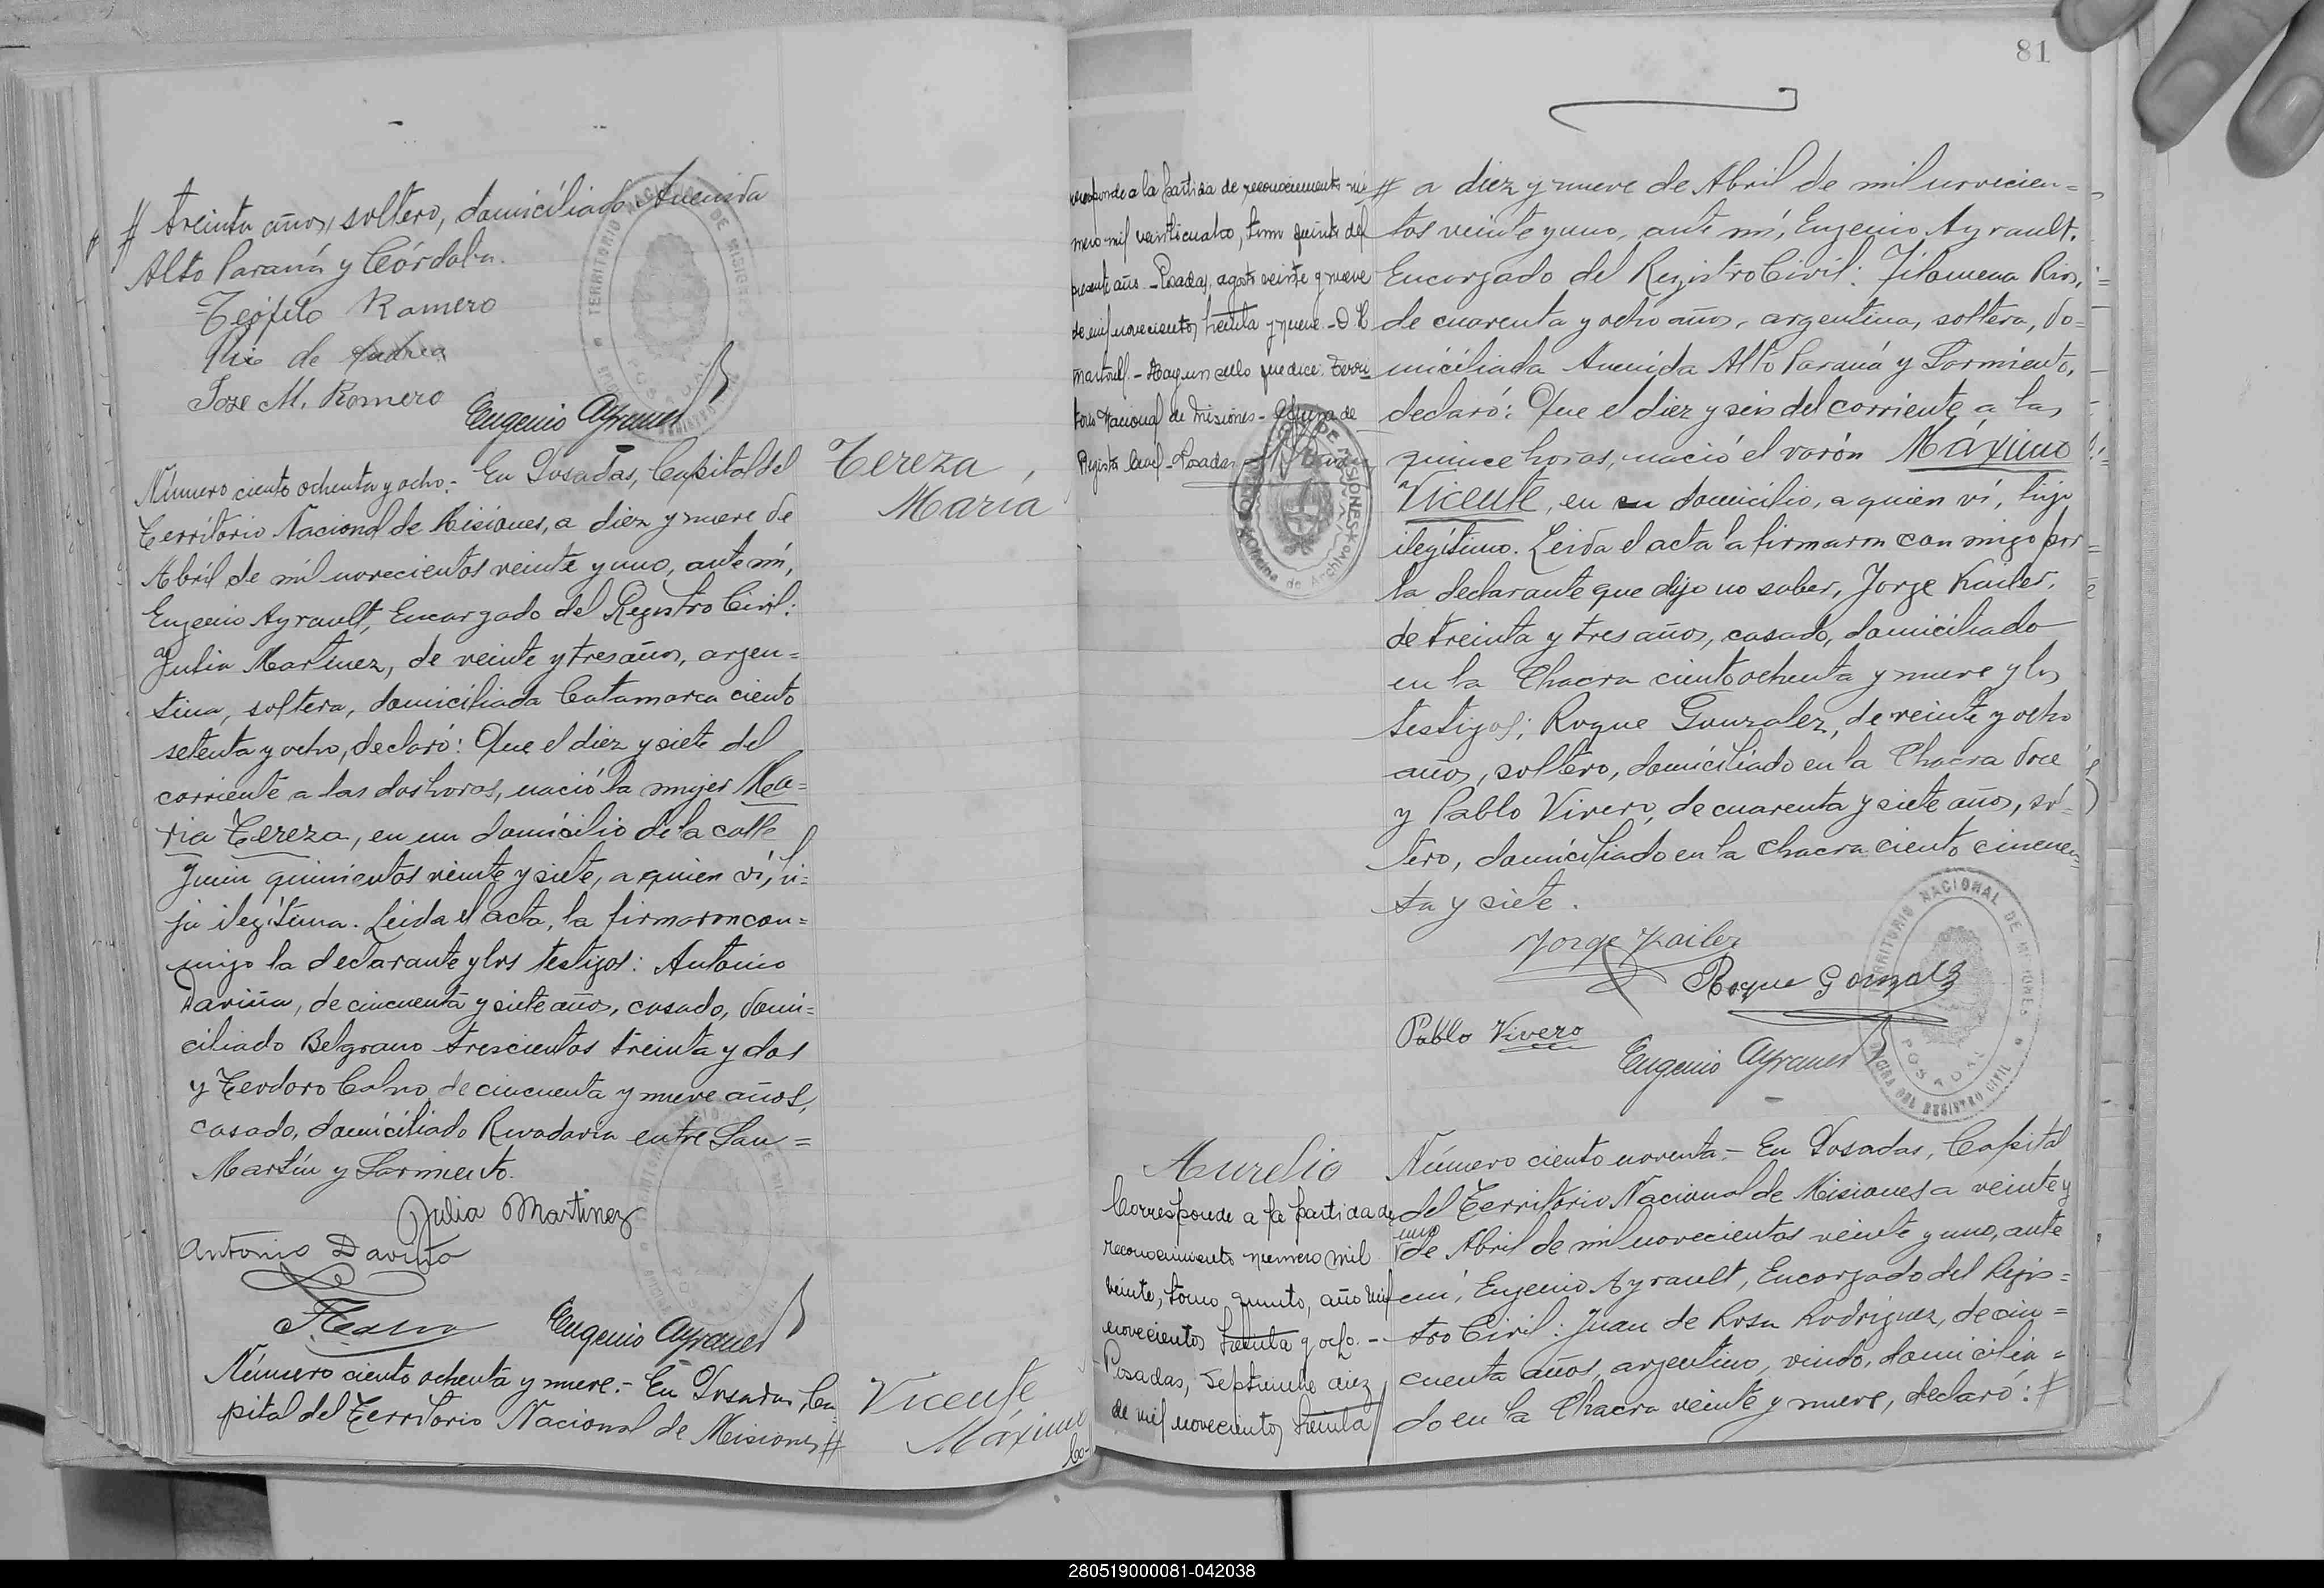 # treinta años, soltero, domiciliado Avenida
Alto Paraná y Córdoba.
Teófilo Romero
Jose M. Romero
Eugenio Ayrault
Número ciento ochenta y ocho.- En Posadas, Capital del
Territorio Nacional de Misiones, a diez y nueve de
Abril de mil novecientos veinte y uno, ante mí,
Eugenio Ayrault, Encargado del Registro Civil:
Julia Martinez, de veinte y tres años, argen=
tina, soltera, domiciliada Catamarca ciento
setenta y ocho, declaró: Que el diez y siete del
corriente a las dos horas, nació la mujer Ma=
ria Tereza, en un domicilio de la calle
Junin quinientos veinte y siete, a quien ví, hi=
ja ilegítima. Leida el acta, la firmaron con=
migo la declarante y los testigos: Antonio
Daviña, de cincuenta y siete años, casado, domi=
ciliado Belgrano trescientos treinta y dos
y Teodoro Calvo de cincuenta y nueve años,
casado, domiciliado Rivadavia entre San=
Martín y Sarmiento.
Julia Martinez
Antonio Daviña
Eugenio Ayrault
Número ciento ochenta y nueve.- En Posadas, Ca=
pital del Territorio Nacional de Misiones #
Tereza
María
Vicente
Máximo
Co-
81
rresponde a la partida de reconocimiento nú
mero mil veinticuatro, tomo quinto del
presente año.- Posadas, agosto veinte y nueve
de mil novecientos treinta y nueve.-
Hay un sello que dice: Terri
torio Nacional de Misiones- Oficina de
Registro Civil- Posadas-
# a diez y nueve de Abril de mil novecien=
tos veinte y uno, ante mí, Eugenio Ayrault,
Encargado del Registro Civil: Filomena Rios,
de cuarenta y ocho años, argentina, soltera, do=
miciliada Avenida Alto Paraná y Sarmiento,
declaró: Que el diez y seis del corriente a las
quince horas, nació el varón Máximo
Vicente, en su domicilio, a quien ví, hijo
ilegítimo. Leida el acta la firmaron con migo por
la declarante que dijo no saber, Jorge Kailer,
de treinta y tres años, casado, domiciliado
en la Chacra ciento ochenta y nueve y los
testigos; Roque Gonzalez, de veinte y ocho
años, soltero, domiciliado en la Chacra doce
y Pablo Vivero, de cuarenta y siete años, sol
tero, domiciliado en la chacra ciento cincuen=
ta y siete.
Jorge Kailer
Roque Gonzalez
Pablo Vivero
Eugenio Ayrault
TERRITORIO NACIONAL DE MISIONES
OFICINA DEL REGISTRO CIVIL
POSADAS
Aurelio
Corresponde a la partida de
reconocimiento número mil
veinte, tomo quinto, año mil
novecientos treinta y ocho.-
Posadas, Septiembre diez
de mil novecientos treinta
Número ciento noventa.- En Posadas, Capital
del Territorio Nacional de Misiones a veinte y
uno
de Abril de mil novecientos veinte y uno, ante
mí, Eugenio Ayrault, Encargado del Regis=
tro Civil: Juan de Rosa Rodriguez, de cin=
cuenta años, argentino, viudo, domicilia=
do en la Chacra veinte y nueve, declaró: #
280519000081-042038